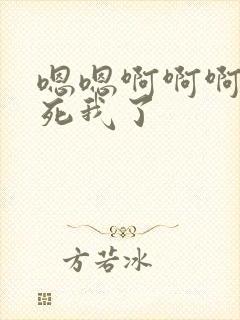 嗯嗯啊啊啊
死我了
方若冰